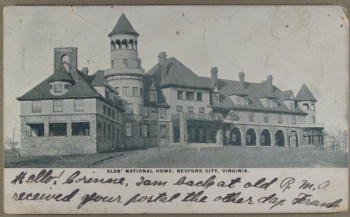 ELKS' NATIONAL HOME, BEDFORD CITY, VIRGINIA.
Hello! Corinne, I am back at old R.M.A
received your postal the other day Frank